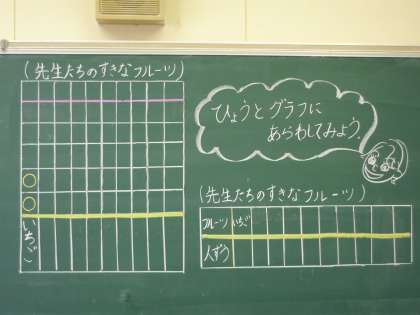 (先生たちのすきなフルーツ)
いちご
ひょうとグラフに
あらわしてみよう。
(先生たちのすきなフルーツ)
フルーツ いちご
人ずう